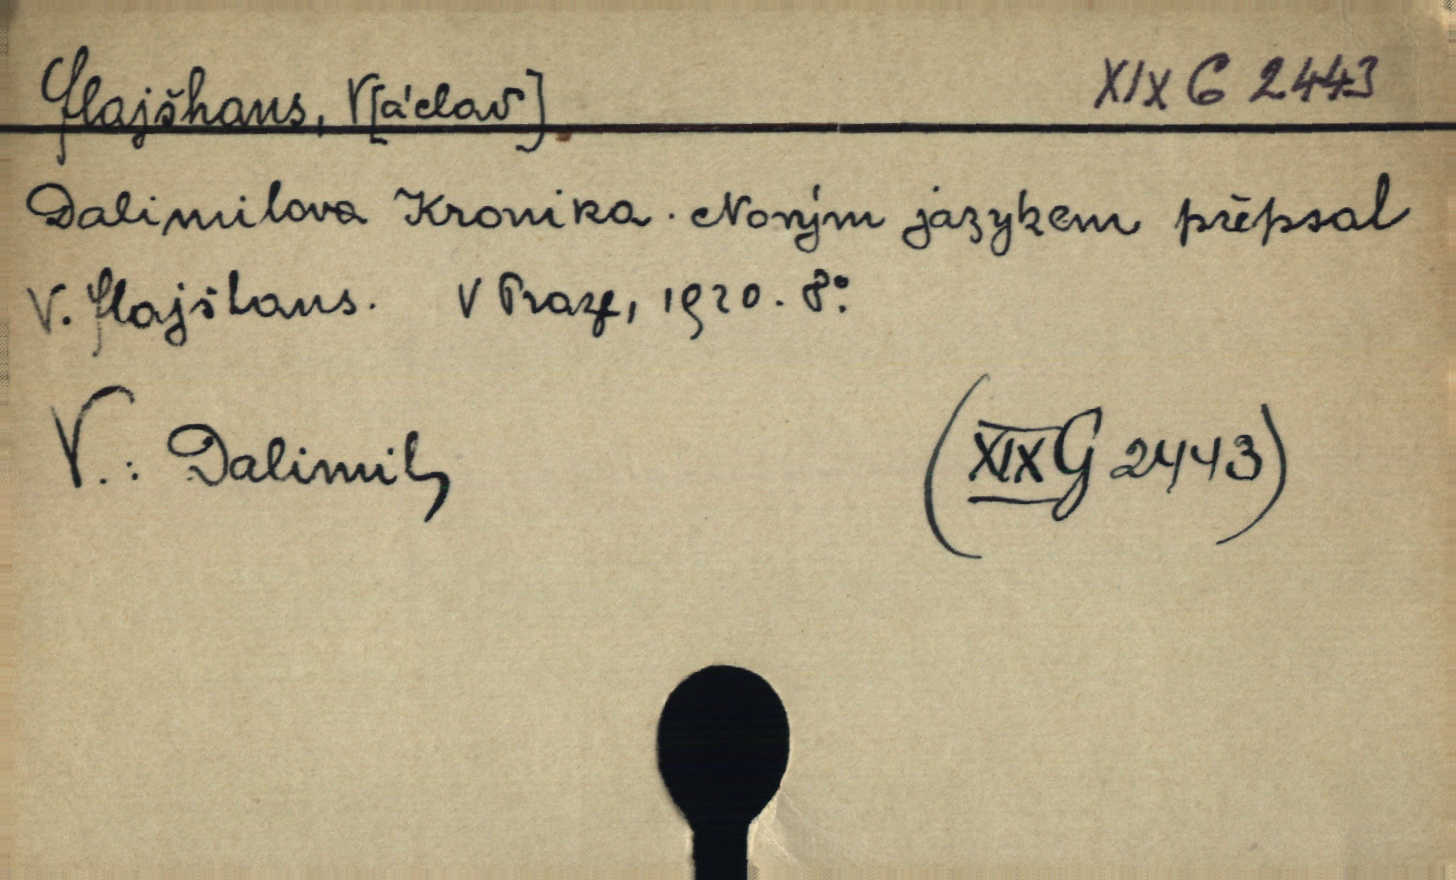 Flajšhans, V[áclav] XIX G 2443
Dalimilova Kronika. Novým jazykem přepsal
V. Flajšhans. V Praze, 1920. 8°.
V.: Dalimil, (XIX G 2443)